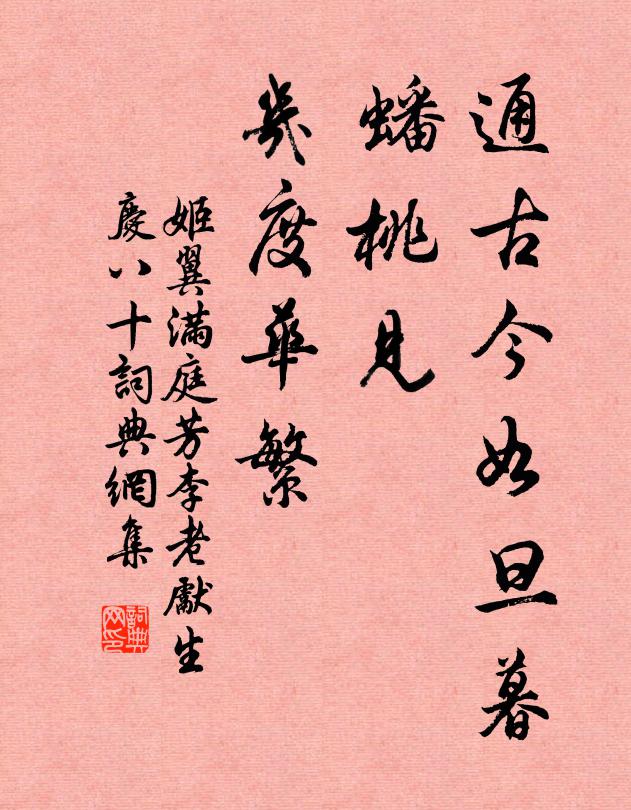 通古今如旦暮
蟠桃見
幾度華繁
姬翼滿庭芳李老獻生
慶八十詞典網集
詞典網印